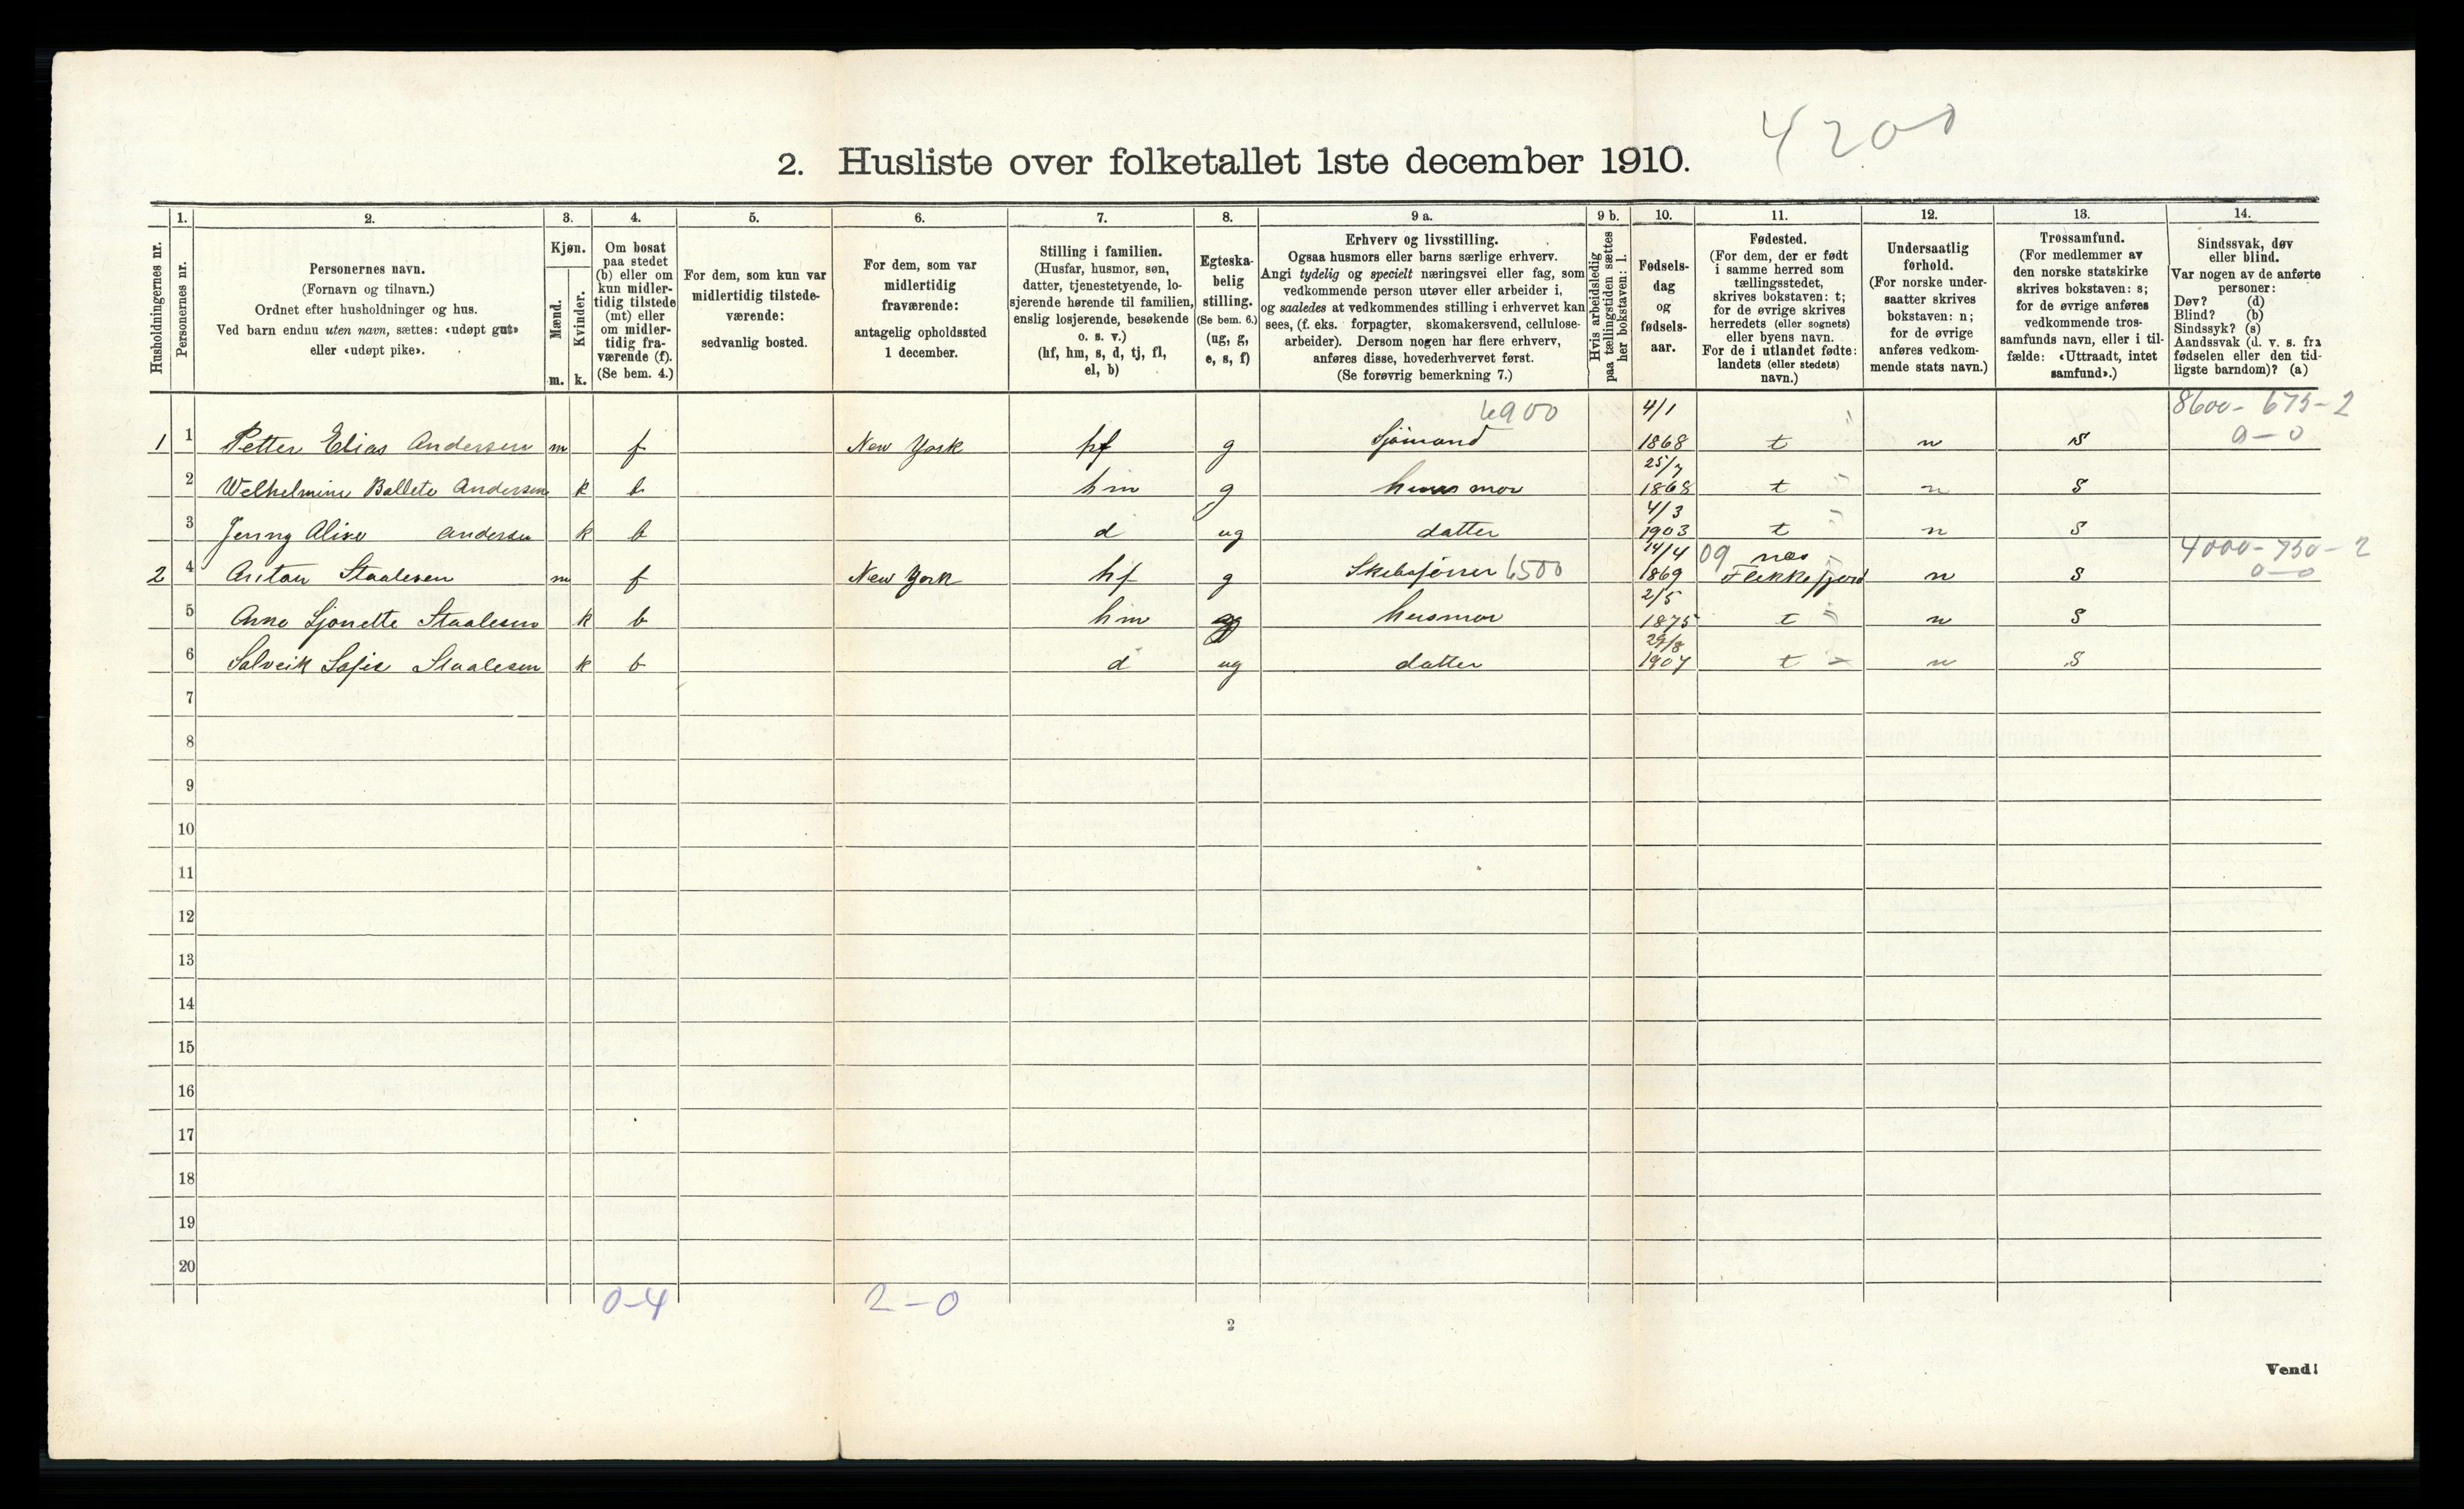 4200
2. Husliste over folketallet 1ste december 1910.
1. 2. 3. 4. 5. 6. 7. 8. 9 a. 9 b. 10. 11. 12. 13. 14.
Husholdningernes nr.
Personernes nr.
Personernes navn.
(Fornavn og tilnavn.)
Ordnet efter husholdninger og hus.
Ved barn endnu uten navn, sættes: «udøpt gut»
eller «udøpt pike».
Kjøn.
Mænd.
Kvinder.
m. k.
Om bosat
paa stedet
(b) eller om
kun midler-
tidig tilstede
(mt) eller
om midler-
tidig fra-
værende (f).
(Se bem. 4.)
For dem, som kun var
midlertidig tilstede-
værende:
sedvanlig bosted.
For dem, som var
midlertidig
fraværende:
antagelig opholdssted
1 december.
Stilling i familien.
(Husfar, husmor, søn,
datter, tjenestetyende, lo-
sjerende hørende til familien,
enslig losjerende, besøkende
o. s. v.)
(hf, hm, s, d, tj, fl,
el, b)
Egteska-
belig
stilling.
(Se bem. 6.)
(ug, g,
e, s, f)
Erhverv og livsstilling.
Ogsaa husmors eller barns særlige erhverv.
Angi tydelig og specielt næringsvei eller fag, som
vedkommende person utøver eller arbeider i,
og saaledes at vedkommendes stilling i erhvervet kan
sees, (f. eks. forpagter, skomakersvend, cellulose-
arbeider). Dersom nogen har flere erhverv,
anføres disse, hovederhvervet først.
(Se forøvrig bemerkning 7.)
Hvis arbeidsledig
paa tællingstiden sættes
her bokstaven: l.
Fødsels-
dag
og
fødsels-
aar.
Fødested.
(For dem, der er født
i samme herred som
tællingsstedet,
skrives bokstaven: t;
for de øvrige skrives
herredets (eller sognets)
eller byens navn.
For de i utlandet fødte:
landets (eller stedets)
navn.)
Undersaatlig
forhold.
(For norske under-
saatter skrives
bokstaven: n;
for de øvrige
anføres vedkom-
mende stats navn.)
Trossamfund.
(For medlemmer av
den norske statskirke
skrives bokstaven: s;
for de øvrige anføres
vedkommende tros-
samfunds navn, eller i til-
fælde: «Uttraadt, intet
samfund».)
Sindssvak, døv
eller blind.
Var nogen av de anførte
personer:
Døv? (d)
Blind? (b)
Sindssyk? (s)
Aandssvak (d. v. s. fra
fødselen eller den tid-
ligste barndom)? (a)
4/1 8600-675-2
1 1 Petter Elias Andersen m f New York hf g Sjømand 1868 t n s 0-0
25/7
2 Welhelmine Ballete Andersen k b hm g husmor 1868 t n s
4/3
3 Jenny Andersen k b d ug datter 1903 t n s
14/4 09 næs 4000-750-2
2 4 Anton Staalesen m f New York hf g 6500 1869 Flekkefjord n s 0-0
2/5
5 Anne Sjonette Staalesen k b hm g husmor 1875 t n s
29/8
6 Solveik Sofie Staalesen k b d ug datter 1907 t n s
7
8
9
10
11
12
13
14
15
16
17
18
19
20
0-4 2-0
2
Vend!